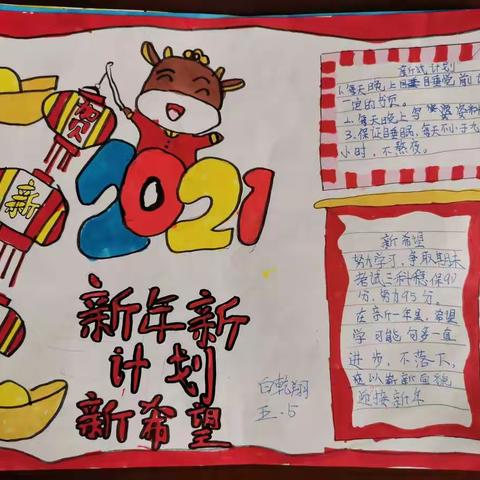 贺
新
2021
新年新
计划
新希望
白乾翔
五.5
计划
1.每天晚上睡觉前
的书页。
2.每天晚上写
3.保证睡眠,每天不小于九
小时,不熬夜。
新希望
努力学习,争取期末
考试三科稳保90
分,努力95分。
在新一年里,希望
学习能一直
进步,不落下,
我以崭新面貌
迎接新年